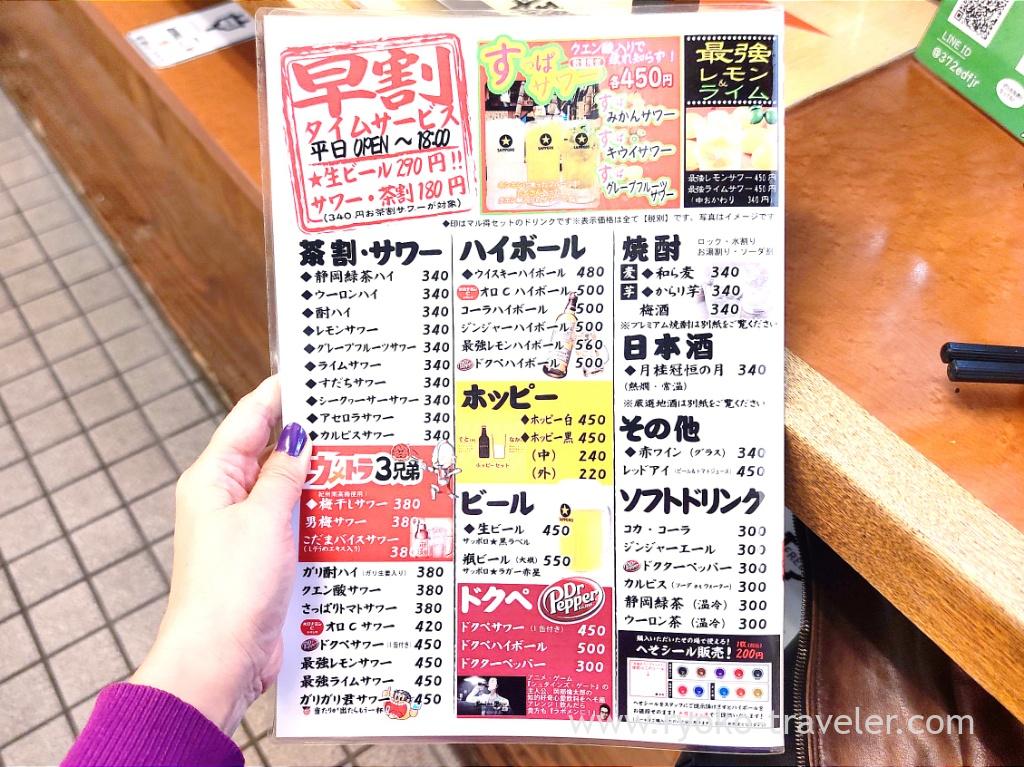 早割
タイムサービス
平日 OPEN ～ 18:00
★生ビール 290円!!
サワー・茶割 180円
(340円お茶割サワーが対象)
すっぱサワー
クエン酸入りで
疲れ知らず!
各450円
すっぱ
みかんサワー
すっぱ
キウイサワー
すっぱ
グレープフルーツサワー
最強
レモン
&
ライム
最強レモンサワー 450円
最強ライムサワー 450円
(中おかわり 340円
LINE ID
@372edfjr
◆印はマル得セットのドリンクです※表示価格は全て【税別】です。写真はイメージです
茶割・サワー
◆静岡緑茶ハイ 340
◆ウーロンハイ 340
◆酎ハイ 340
◆レモンサワー 340
◆グレープフルーツサワー 340
◆ライムサワー 340
◆すだちサワー 340
◆シークヮーサーサワー 340
◆アセロラサワー 340
◆カルピスサワー 340
ウメトラ3兄弟
紀州南高梅使用!
◆梅干しサワー 380
男梅サワー 380
こだまバイスサワー
(しそうめエキス入り) 380
ガリ酎ハイ (ガリ生姜入り) 380
クエン酸サワー 380
さっぱりトマトサワー 380
オロCサワー 420
◆ドクペサワー (1缶付き) 450
最強レモンサワー 450
最強ライムサワー 450
ガリガリ君サワー 450
当たり棒が出たらもう一杯
ハイボール
◆ウイスキーハイボール 480
オロCハイボール 500
コーラハイボール 500
ジンジャーハイボール 500
最強レモンハイボール 560
ドクペハイボール 500
ホッピー
◆ホッピー白 450
◆ホッピー黒 450
(中) 240
(外) 220
ホッピーセット
ビール
◆生ビール 450
サッポロ★黒ラベル
瓶ビール (大瓶) 550
サッポロ★ラガー赤星
ドクペ
Dr Pepper
ドクペサワー (1缶付き) 450
ドクペハイボール 500
ドクターペッパー 300
アニメ・ゲーム
『シュタインズ・ゲート』の
主人公、岡部倫太郎の
知的好奇心愛飲料をへそ風
アレンジ!飲んだら
貴方も『ラボメン』!
焼酎
ロック・水割り
お湯割り・ソーダ割
麦 ◆和ら麦 340
芋 ◆からり芋 340
梅酒 340
※プレミアム焼酎は別紙をご覧ください
日本酒
◆月桂冠恒の月 340
(熱燗・常温)
※厳選地酒は別紙をご覧ください
その他
◆赤ワイン (グラス) 340
レッドアイ (ビール&トマトジュース) 450
ソフトドリンク
コカ・コーラ 300
ジンジャーエール 300
ドクターペッパー 300
カルピス (ソーダ or ウォーター) 300
静岡緑茶 (温冷) 300
ウーロン茶 (温冷) 300
購入いただいたその場で使える!
へそシール販売! 1枚(税別) 200円
www.ryoko-traveler.com